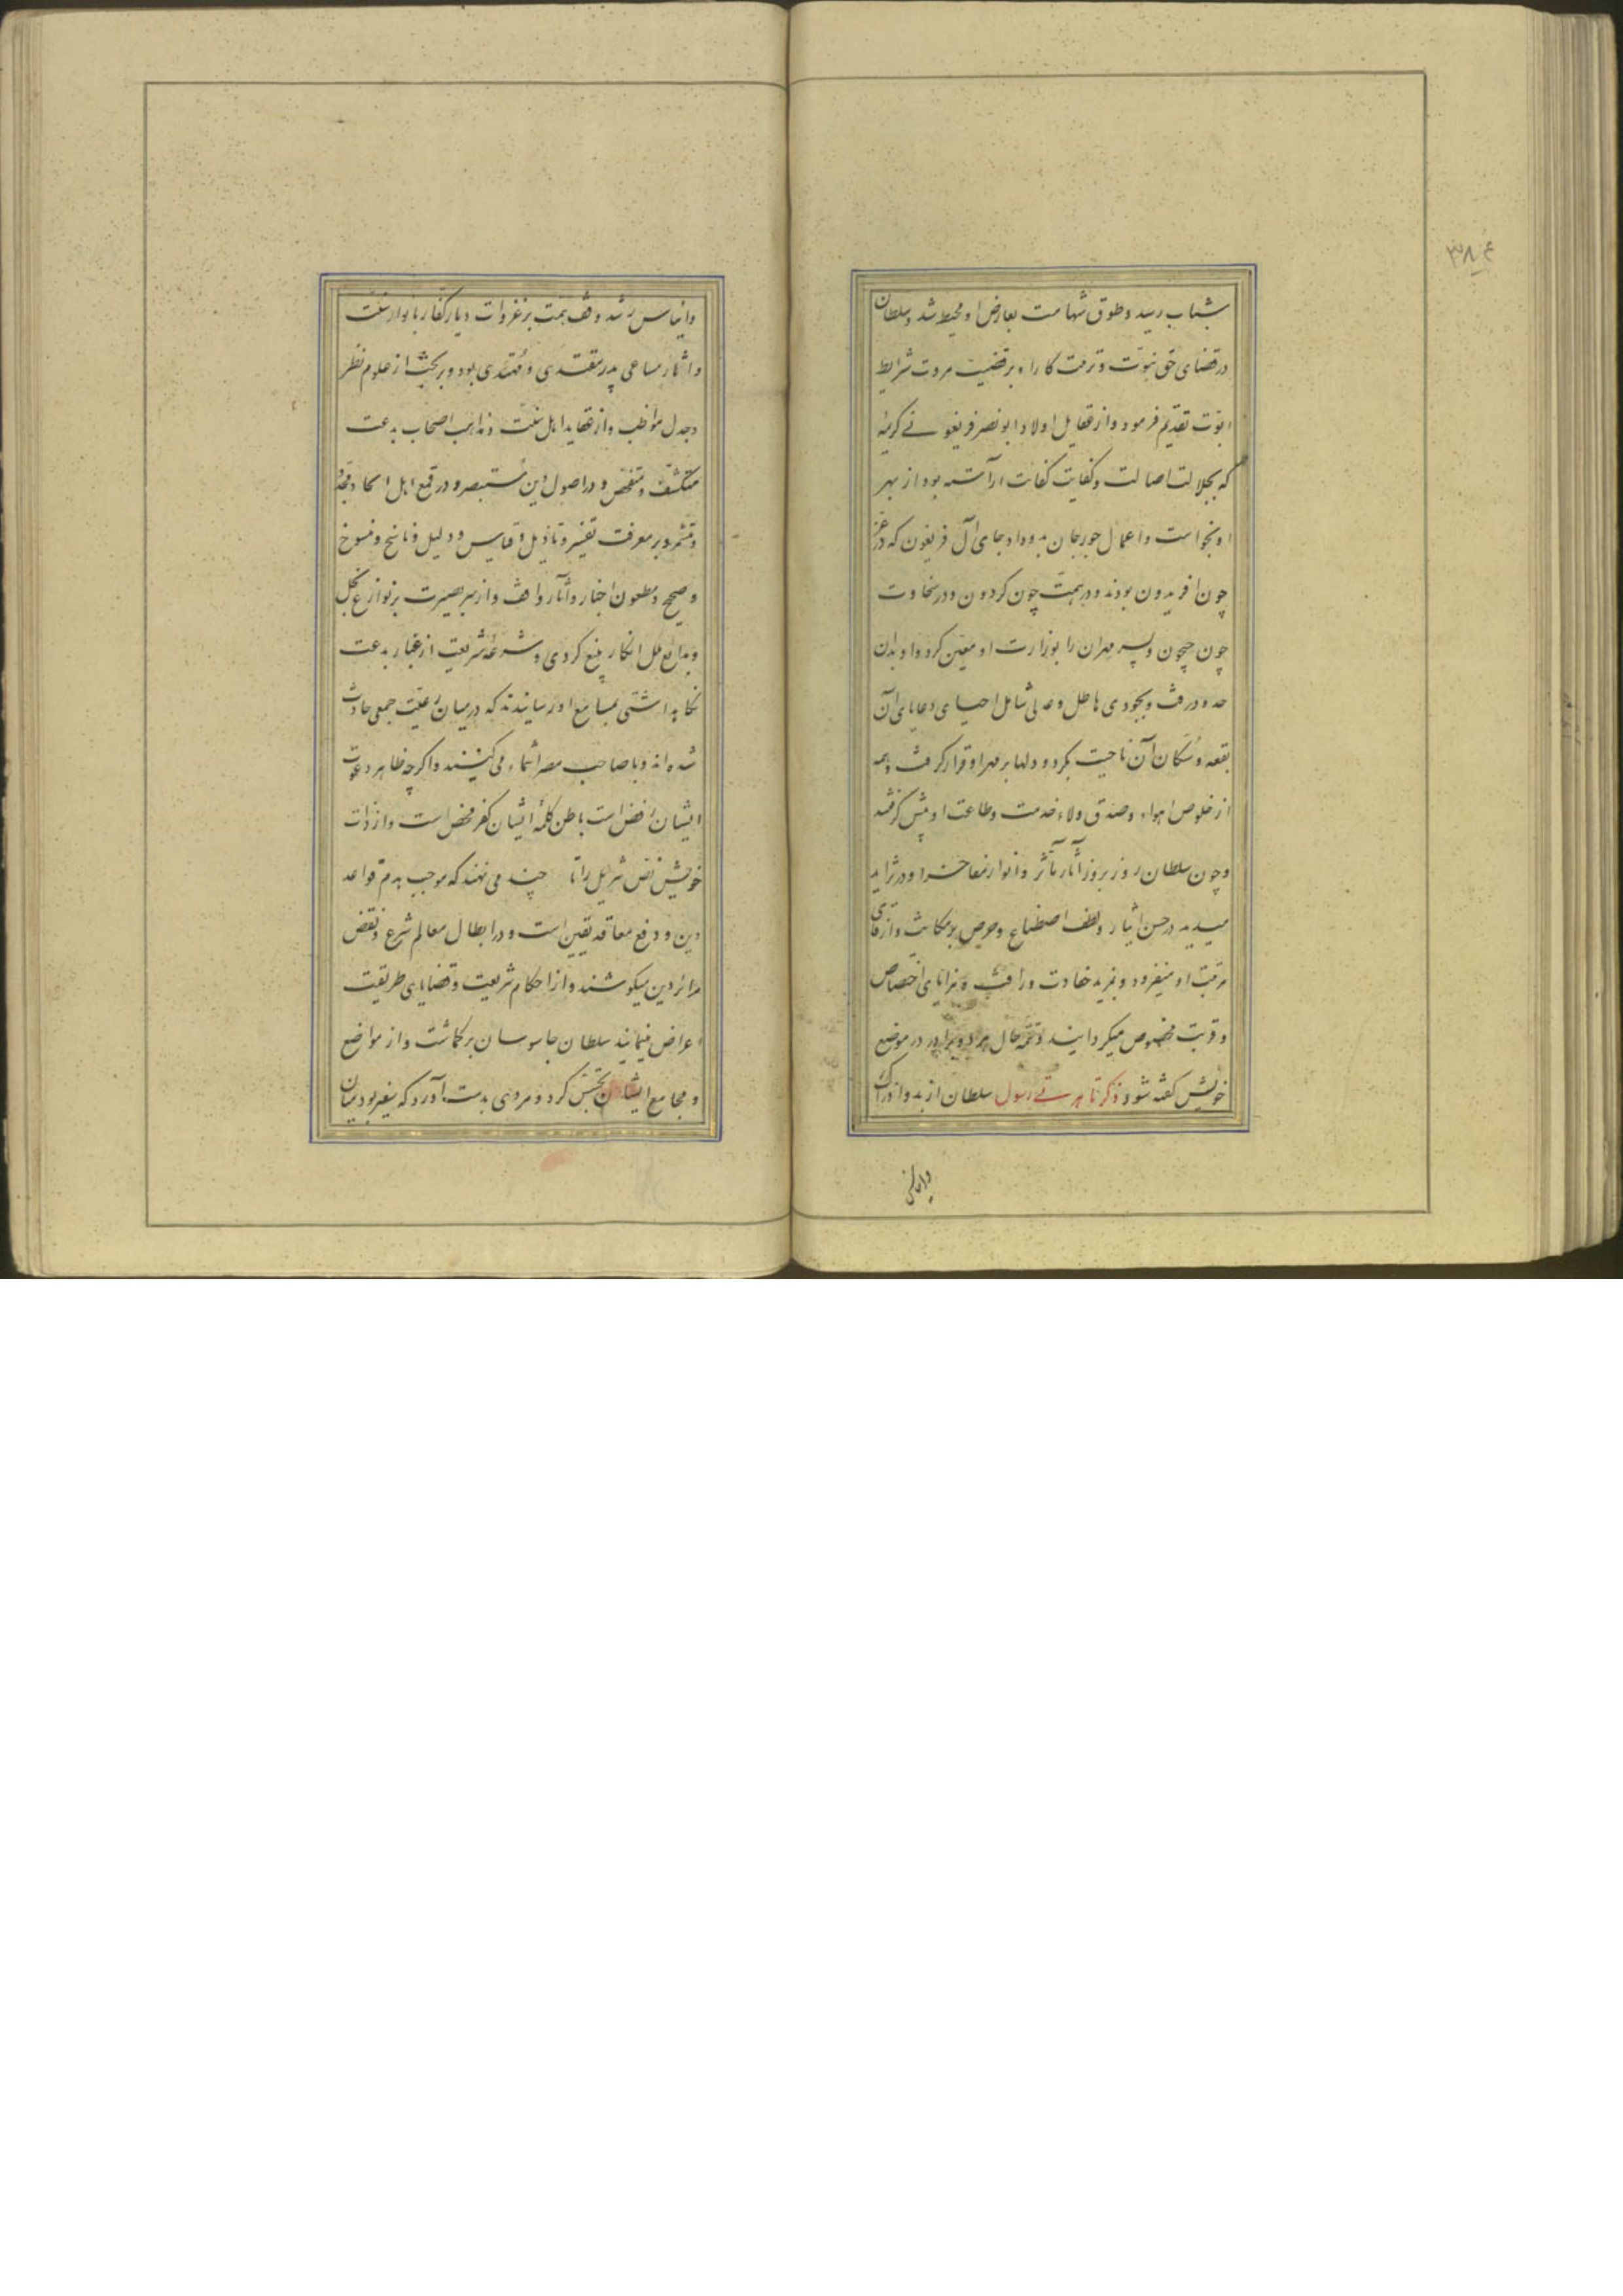 بشباب رسید و طوق شهامت بعارض او محیط شد و سلطان
در قضای حق نبوّت و تربیت کار او بر قضیت مروت شرایط
ابوّت تقدیم فرمود و از عقایل اولاد ابو نصر فریغونی کریمهٔ
که بجلالت اصالت و کفایت کفات آراسته بود از بهر
او بخواست و اعمال جوزجان بدو داد جای آل فریغون که در عز
چون افریدون بودند و در همت چون کردون و در سخاوت
چون جیحون و پسر مهران را بوزارت او معین کرد و او بدان
حدود رفت و بجودی هاطل و عدلی شامل احیای رعایای آن
بقعه و سکان آن ناحیت بکرد و دلها بر مهر او قرار کرفت و همه
از خلوص اهواء و صدق ولاء خدمت و طاعت او پیش کرفتند
و چون سلطان روز بروز آثار مآثر و انوار مفاخر او در تزاید
میدید در حسن ایثار و لطف اصطناع و حرص بر مکانت و ترقی
مرتبت او میفزود و بمزید حفاوت و رافت و مزایای اختصاص
و قربت مخصوص میکردانید و تتمّه حال هر دو برادر در موضع
خویش کفته شود ذکر تاهرتی رسول سلطان از بدو ادراک
و ایناس
۳۸۴
و ایناس رشد وقف همت بر غزوات دیار کفار با نوار سنّت
و آثار مساعی پدر مقتدی و مهتدی بود و بر بحث از علوم نظر
و جدل مواظب و از عقاید اهل سنّت و مذاهب اصحاب بدعت
متکشف و متفحّص و در اصول دین مستبصر و در قمع اهل الحاد مجدّ
و متشمر و بر معرفت تفسیر و تاویل و قیاس و دلیل و ناسخ و منسوخ
و صحیح و مطعون اخبار و آثار واقف و از سر بصیرت بر نوازع نحل
و بدایع ملل انکار بلیغ کردی و شرعهٔ شریعت از غبار بدعت
نکاه داشتی بمسامع او رسانیدند که در میان رعیّت جمعی حادث
شده اند و با صاحب مصر انتماء می کنند و اکرچه ظاهر دعوت
ایشان رفض است باطن کلمهٔ ایشان کفر محض است و از ذات
خویش نصّ تنزیل را تا چند می نهند که موجب هدم قواعد
دین و رفع معاقد یقین است و در ابطال معالم شرع و نقض
مرائر دین میکوشند و از احکام شریعت و قضایای طریقت
اعراض مینمایند سلطان جاسوسان برکماشت و از مواضع
و مجامع ایشان تجسّس کرد و مردی بدست آورد که سفیر بود میان